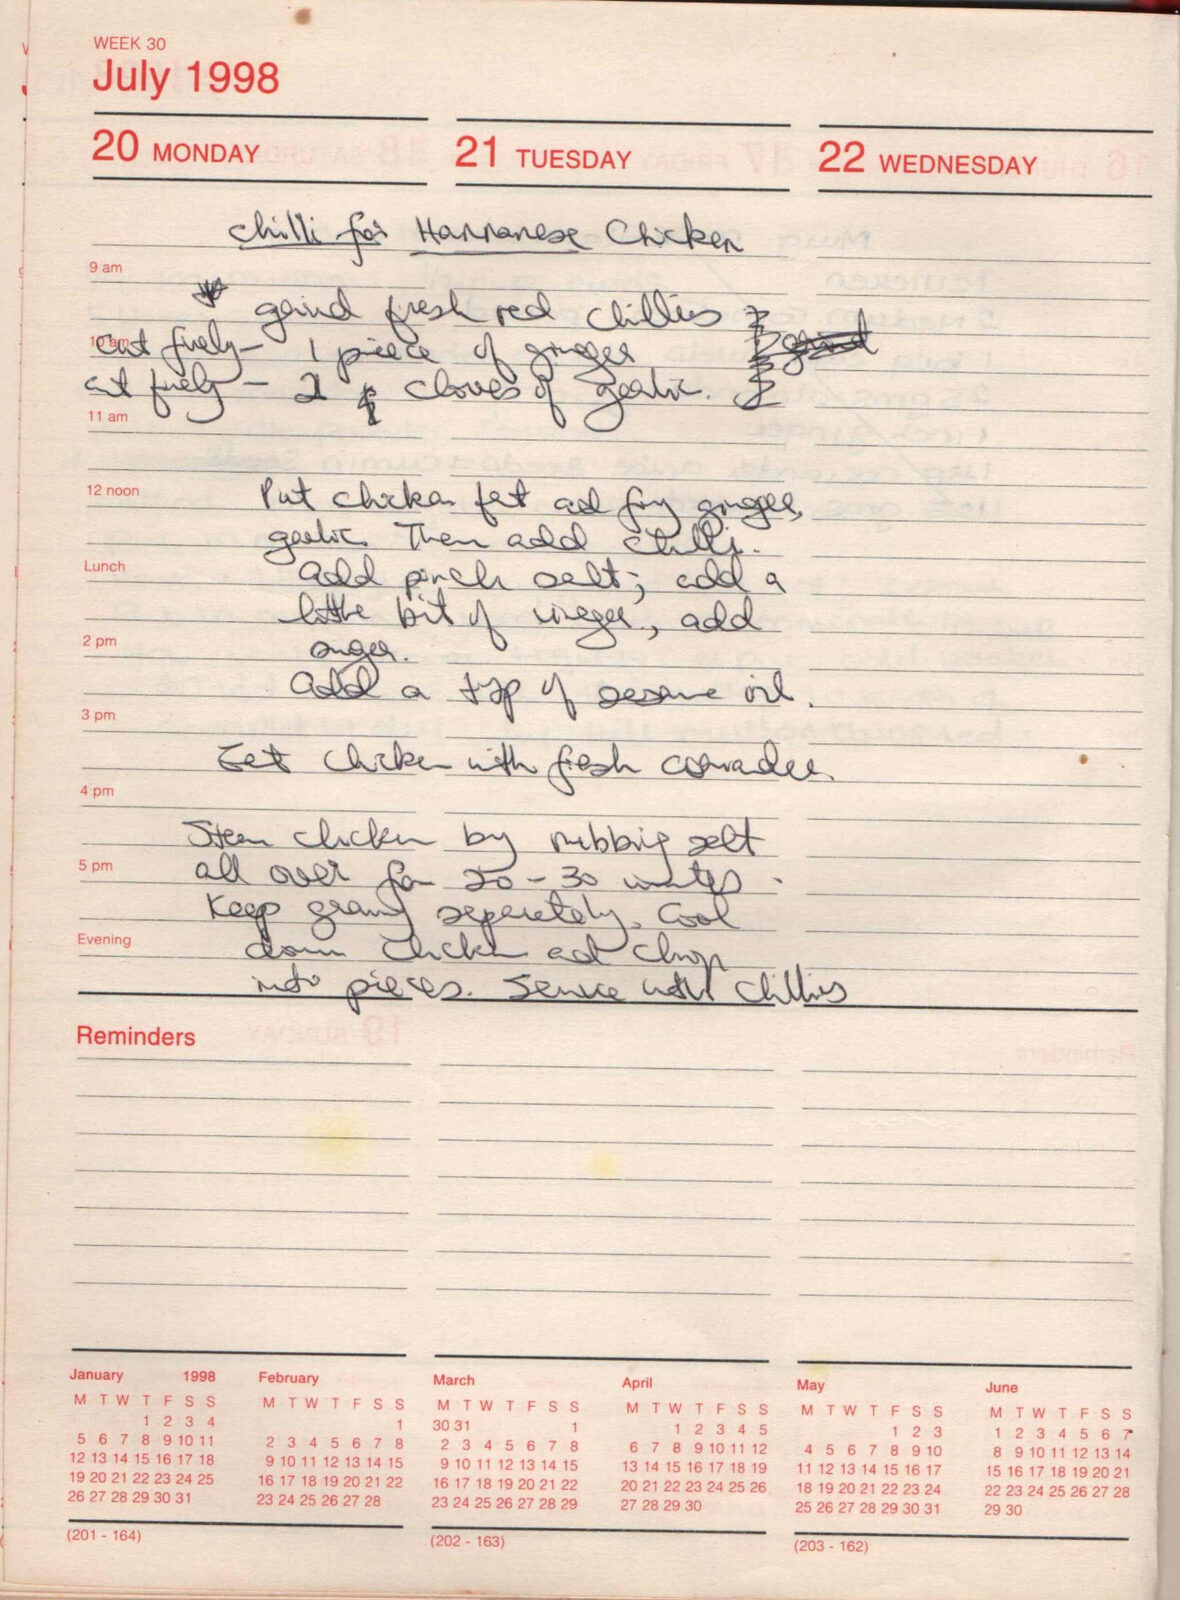 WEEK 30
July 1998
20 MONDAY
21 TUESDAY
22 WEDNESDAY
Chilli for Hannanese Chicken
9 am
grind fresh red chillies
10 am
cut finely - 1 piece of ginger
cut finely - 2 cloves of garlic.
11 am
12 noon
Put chicken fat and fry ginger,
garlic. Then add chilli.
Lunch
Add pinch salt; add a
little bit of vinegar, add
2 pm
sugar.
Add a tsp of sesame oil.
3 pm
Eat chicken with fresh coriander.
4 pm
Steam chicken by rubbing salt
5 pm
all over for 20-30 minutes.
Keep gravy seperately. Cool
Evening
down chicken and chop
into pieces. Serve with chillies
Reminders
January 1998
M T W T F S S
1 2 3 4
5 6 7 8 9 10 11
12 13 14 15 16 17 18
19 20 21 22 23 24 25
26 27 28 29 30 31
February
M T W T F S S
1
2 3 4 5 6 7 8
9 10 11 12 13 14 15
16 17 18 19 20 21 22
23 24 25 26 27 28
March
M T W T F S S
30 31 1
2 3 4 5 6 7 8
9 10 11 12 13 14 15
16 17 18 19 20 21 22
23 24 25 26 27 28 29
April
M T W T F S S
1 2 3 4 5
6 7 8 9 10 11 12
13 14 15 16 17 18 19
20 21 22 23 24 25 26
27 28 29 30
May
M T W T F S S
1 2 3
4 5 6 7 8 9 10
11 12 13 14 15 16 17
18 19 20 21 22 23 24
25 26 27 28 29 30 31
June
M T W T F S S
1 2 3 4 5 6 7
8 9 10 11 12 13 14
15 16 17 18 19 20 21
22 23 24 25 26 27 28
29 30
(201 - 164)
(202 - 163)
(203 - 162)